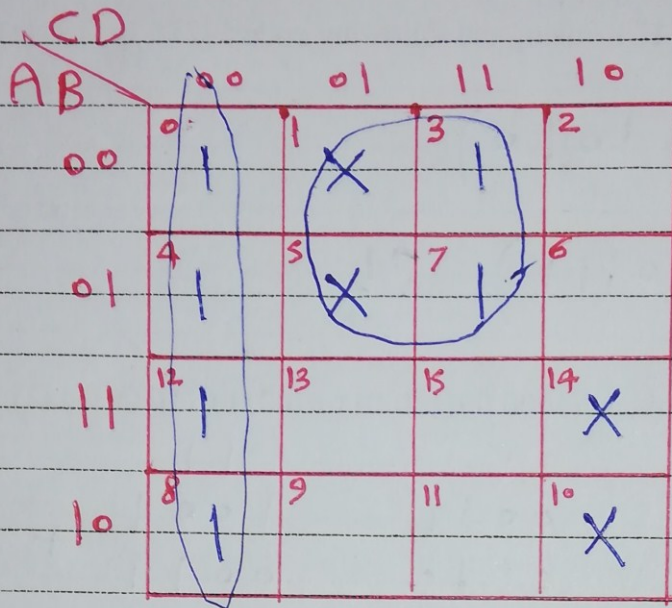 CD
AB 00 01 11 10
00 0 1 1 X 3 1 2
01 4 1 5 X 7 1 6
11 12 1 13 15 14 X
10 8 1 9 11 10 X